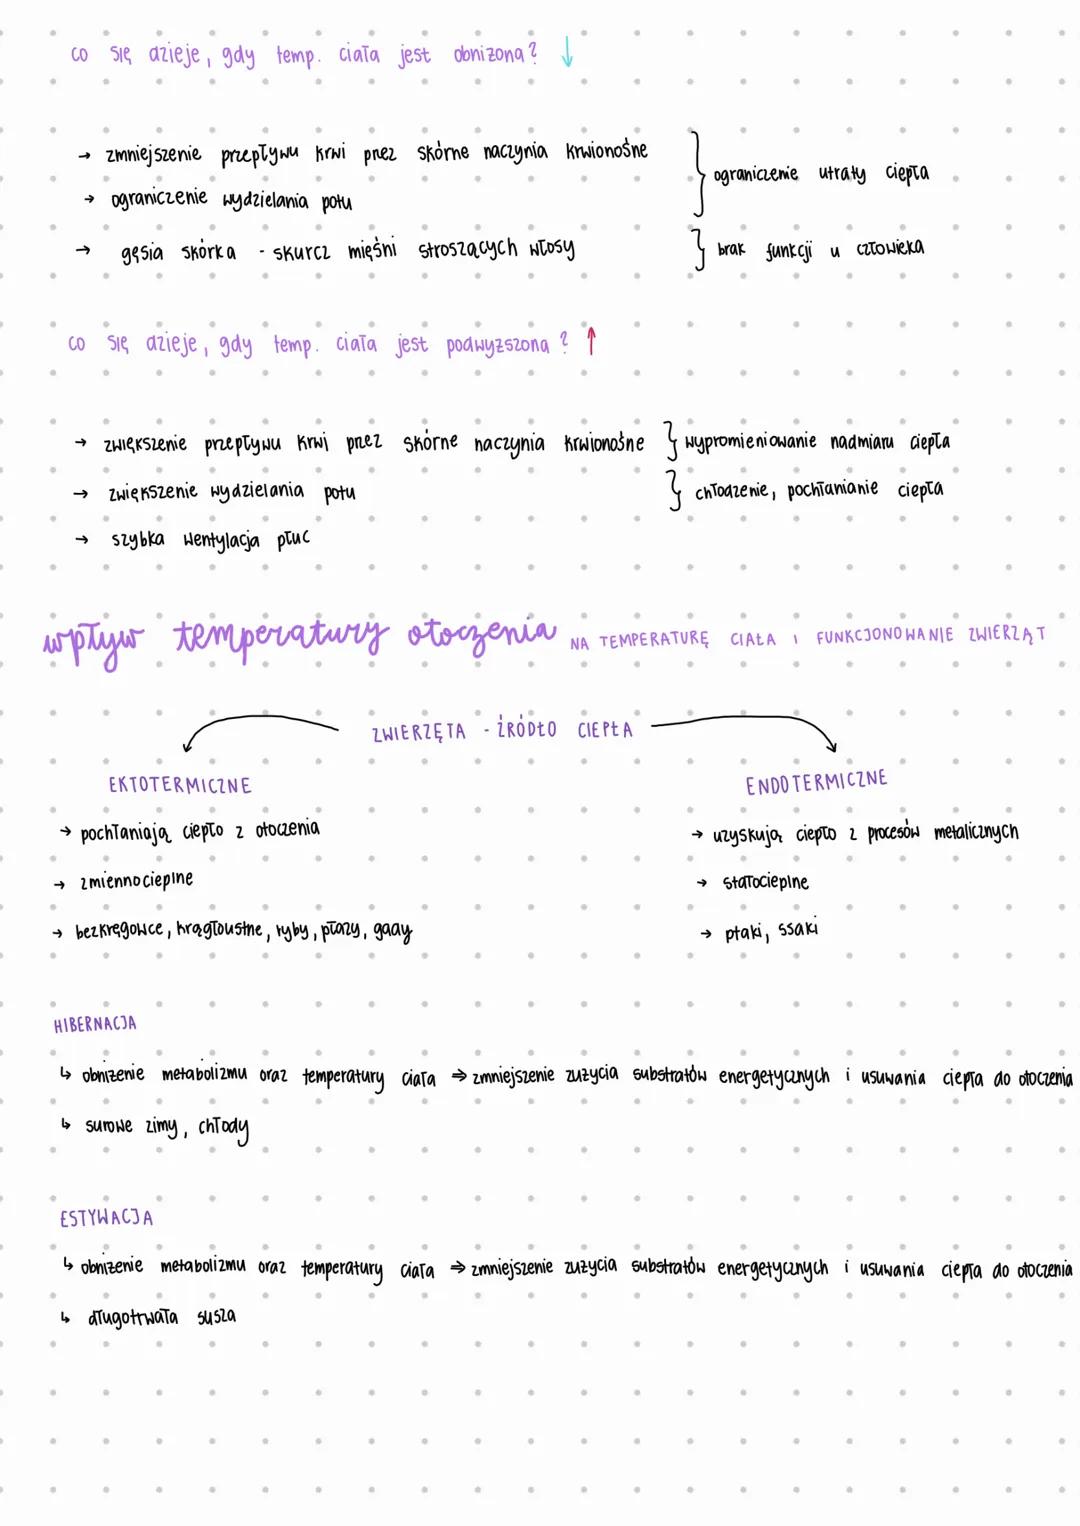 co się dzieje, gdy temp. ciała jest obniżona? ↓
→ zmniejszenie przepływu krwi przez skórne naczynia krwionośne } ograniczenie utraty ciepła
→ ograniczenie wydzielania potu
→ gęsia skórka - skurcz mięśni stroszących włosy } brak funkcji u człowieka
co się dzieje, gdy temp. ciała jest podwyższona? ↑
→ zwiększenie przepływu krwi przez skórne naczynia krwionośne } wypromieniowanie nadmiaru ciepła
→ zwiększenie wydzielania potu } chłodzenie, pochłanianie ciepła
→ szybka wentylacja płuc
wpływ temperatury otoczenia NA TEMPERATURĘ CIAŁA I FUNKCJONOWANIE ZWIERZĄT
ZWIERZĘTA - ŹRÓDŁO CIEPŁA
EKTOTERMICZNE
→ pochłaniają ciepło z otoczenia
→ zmiennocieplne
→ bezkręgowce, krągłoustne, ryby, płazy, gady
ENDOTERMICZNE
→ uzyskują ciepło z procesów metalicznych
→ stałocieplne
→ ptaki, ssaki
HIBERNACJA
↳ obniżenie metabolizmu oraz temperatury ciała ⇒ zmniejszenie zużycia substratów energetycznych i usuwania ciepła do otoczenia
↳ surowe zimy, chłody
ESTYWACJA
↳ obniżenie metabolizmu oraz temperatury ciała ⇒ zmniejszenie zużycia substratów energetycznych i usuwania ciepła do otoczenia
↳ długotrwała susza